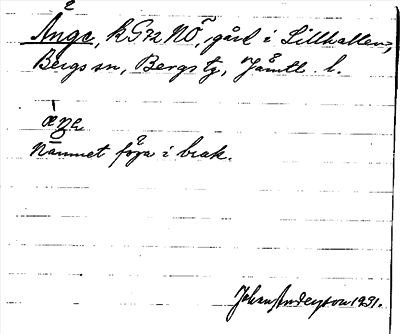 Ånge, kGr2 NÖ, gård i Lillhallen,
Bergs sn, Bergs tg, Jämtl. l.
Namnet föga i bruk.
Johan Anderson 1931.